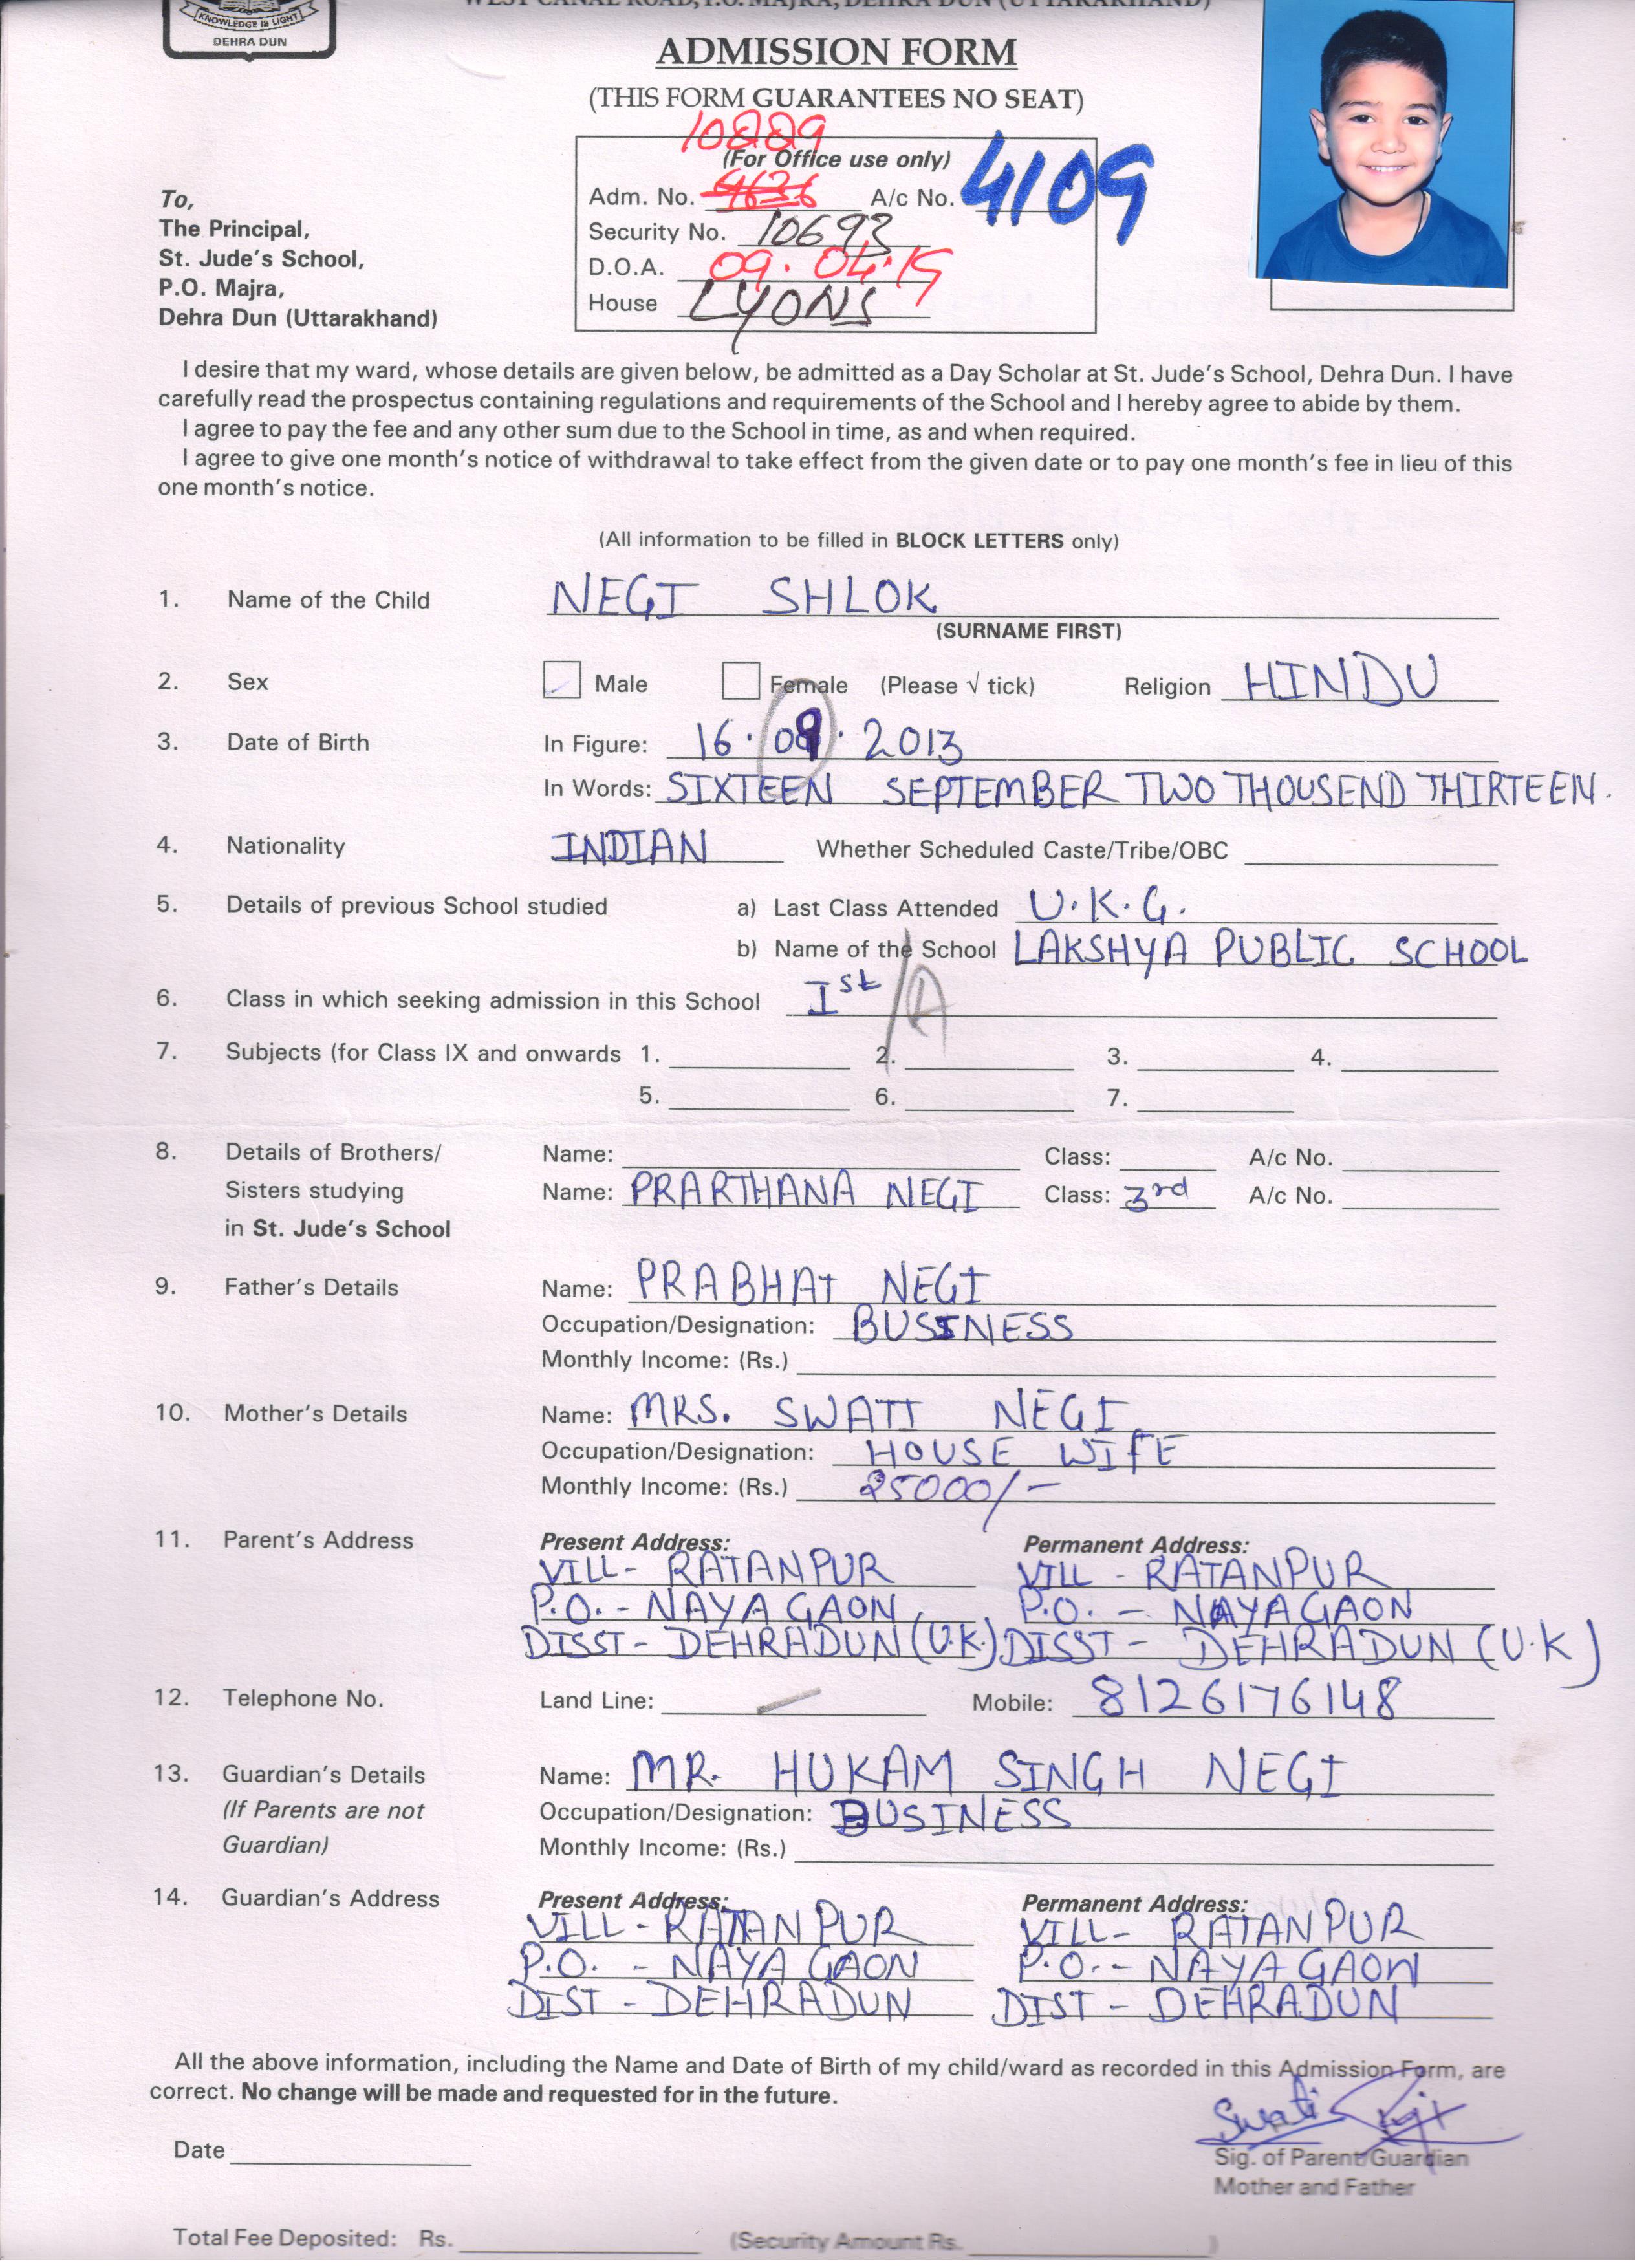 KNOWLEDGE IS LIGHT
DEHRA DUN
WEST CANAL ROAD, P.O. MAJRA, DEHRA DUN (UTTARAKHAND)
ADMISSION FORM
(THIS FORM GUARANTEES NO SEAT)
10229
(For Office use only)
Adm. No. 4636 A/c No. 4109
Security No. 10693
D.O.A. 09.04.19
House LYONS
To,
The Principal,
St. Jude's School,
P.O. Majra,
Dehra Dun (Uttarakhand)
I desire that my ward, whose details are given below, be admitted as a Day Scholar at St. Jude's School, Dehra Dun. I have
carefully read the prospectus containing regulations and requirements of the School and I hereby agree to abide by them.
I agree to pay the fee and any other sum due to the School in time, as and when required.
I agree to give one month's notice of withdrawal to take effect from the given date or to pay one month's fee in lieu of this
one month's notice.
(All information to be filled in BLOCK LETTERS only)
1. Name of the Child NEGI SHLOK
(SURNAME FIRST)
2. Sex Male Female (Please √ tick) Religion HINDU
3. Date of Birth In Figure: 16.09.2013
In Words: SIXTEEN SEPTEMBER TWO THOUSEND THIRTEEN.
4. Nationality INDIAN Whether Scheduled Caste/Tribe/OBC
5. Details of previous School studied a) Last Class Attended U.K.G.
b) Name of the School LAKSHYA PUBLIC SCHOOL
6. Class in which seeking admission in this School Ist/A
7. Subjects (for Class IX and onwards 1. 2. 3. 4.
5. 6. 7.
8. Details of Brothers/ Name: Class: A/c No.
Sisters studying Name: PRARTHANA NEGI Class: 3rd A/c No.
in St. Jude's School
9. Father's Details Name: PRABHAT NEGI
Occupation/Designation: BUSINESS
Monthly Income: (Rs.)
10. Mother's Details Name: MRS. SWATI NEGI
Occupation/Designation: HOUSE WIFE
Monthly Income: (Rs.) 25000/-
11. Parent's Address Present Address: Permanent Address:
VILL- RATANPUR VILL - RATANPUR
P.O. - NAYA GAON P.O. - NAYAGAON
DISST - DEHRADUN (U.K.) DISST - DEHRADUN (U.K)
12. Telephone No. Land Line: Mobile: 8126176148
13. Guardian's Details Name: MR. HUKAM SINGH NEGI
(If Parents are not Occupation/Designation: BUSINESS
Guardian) Monthly Income: (Rs.)
14. Guardian's Address Present Address: Permanent Address:
VILL - RATAN PUR VILL- RATAN PUR
P.O. - NAYA GAON P.O. - NAYA GAON
DIST - DEHRADUN DIST - DEHRADUN
All the above information, including the Name and Date of Birth of my child/ward as recorded in this Admission Form, are
correct. No change will be made and requested for in the future.
Swati
Date Sig. of Parent/Guardian
Mother and Father
Total Fee Deposited: Rs. (Security Amount Rs. )